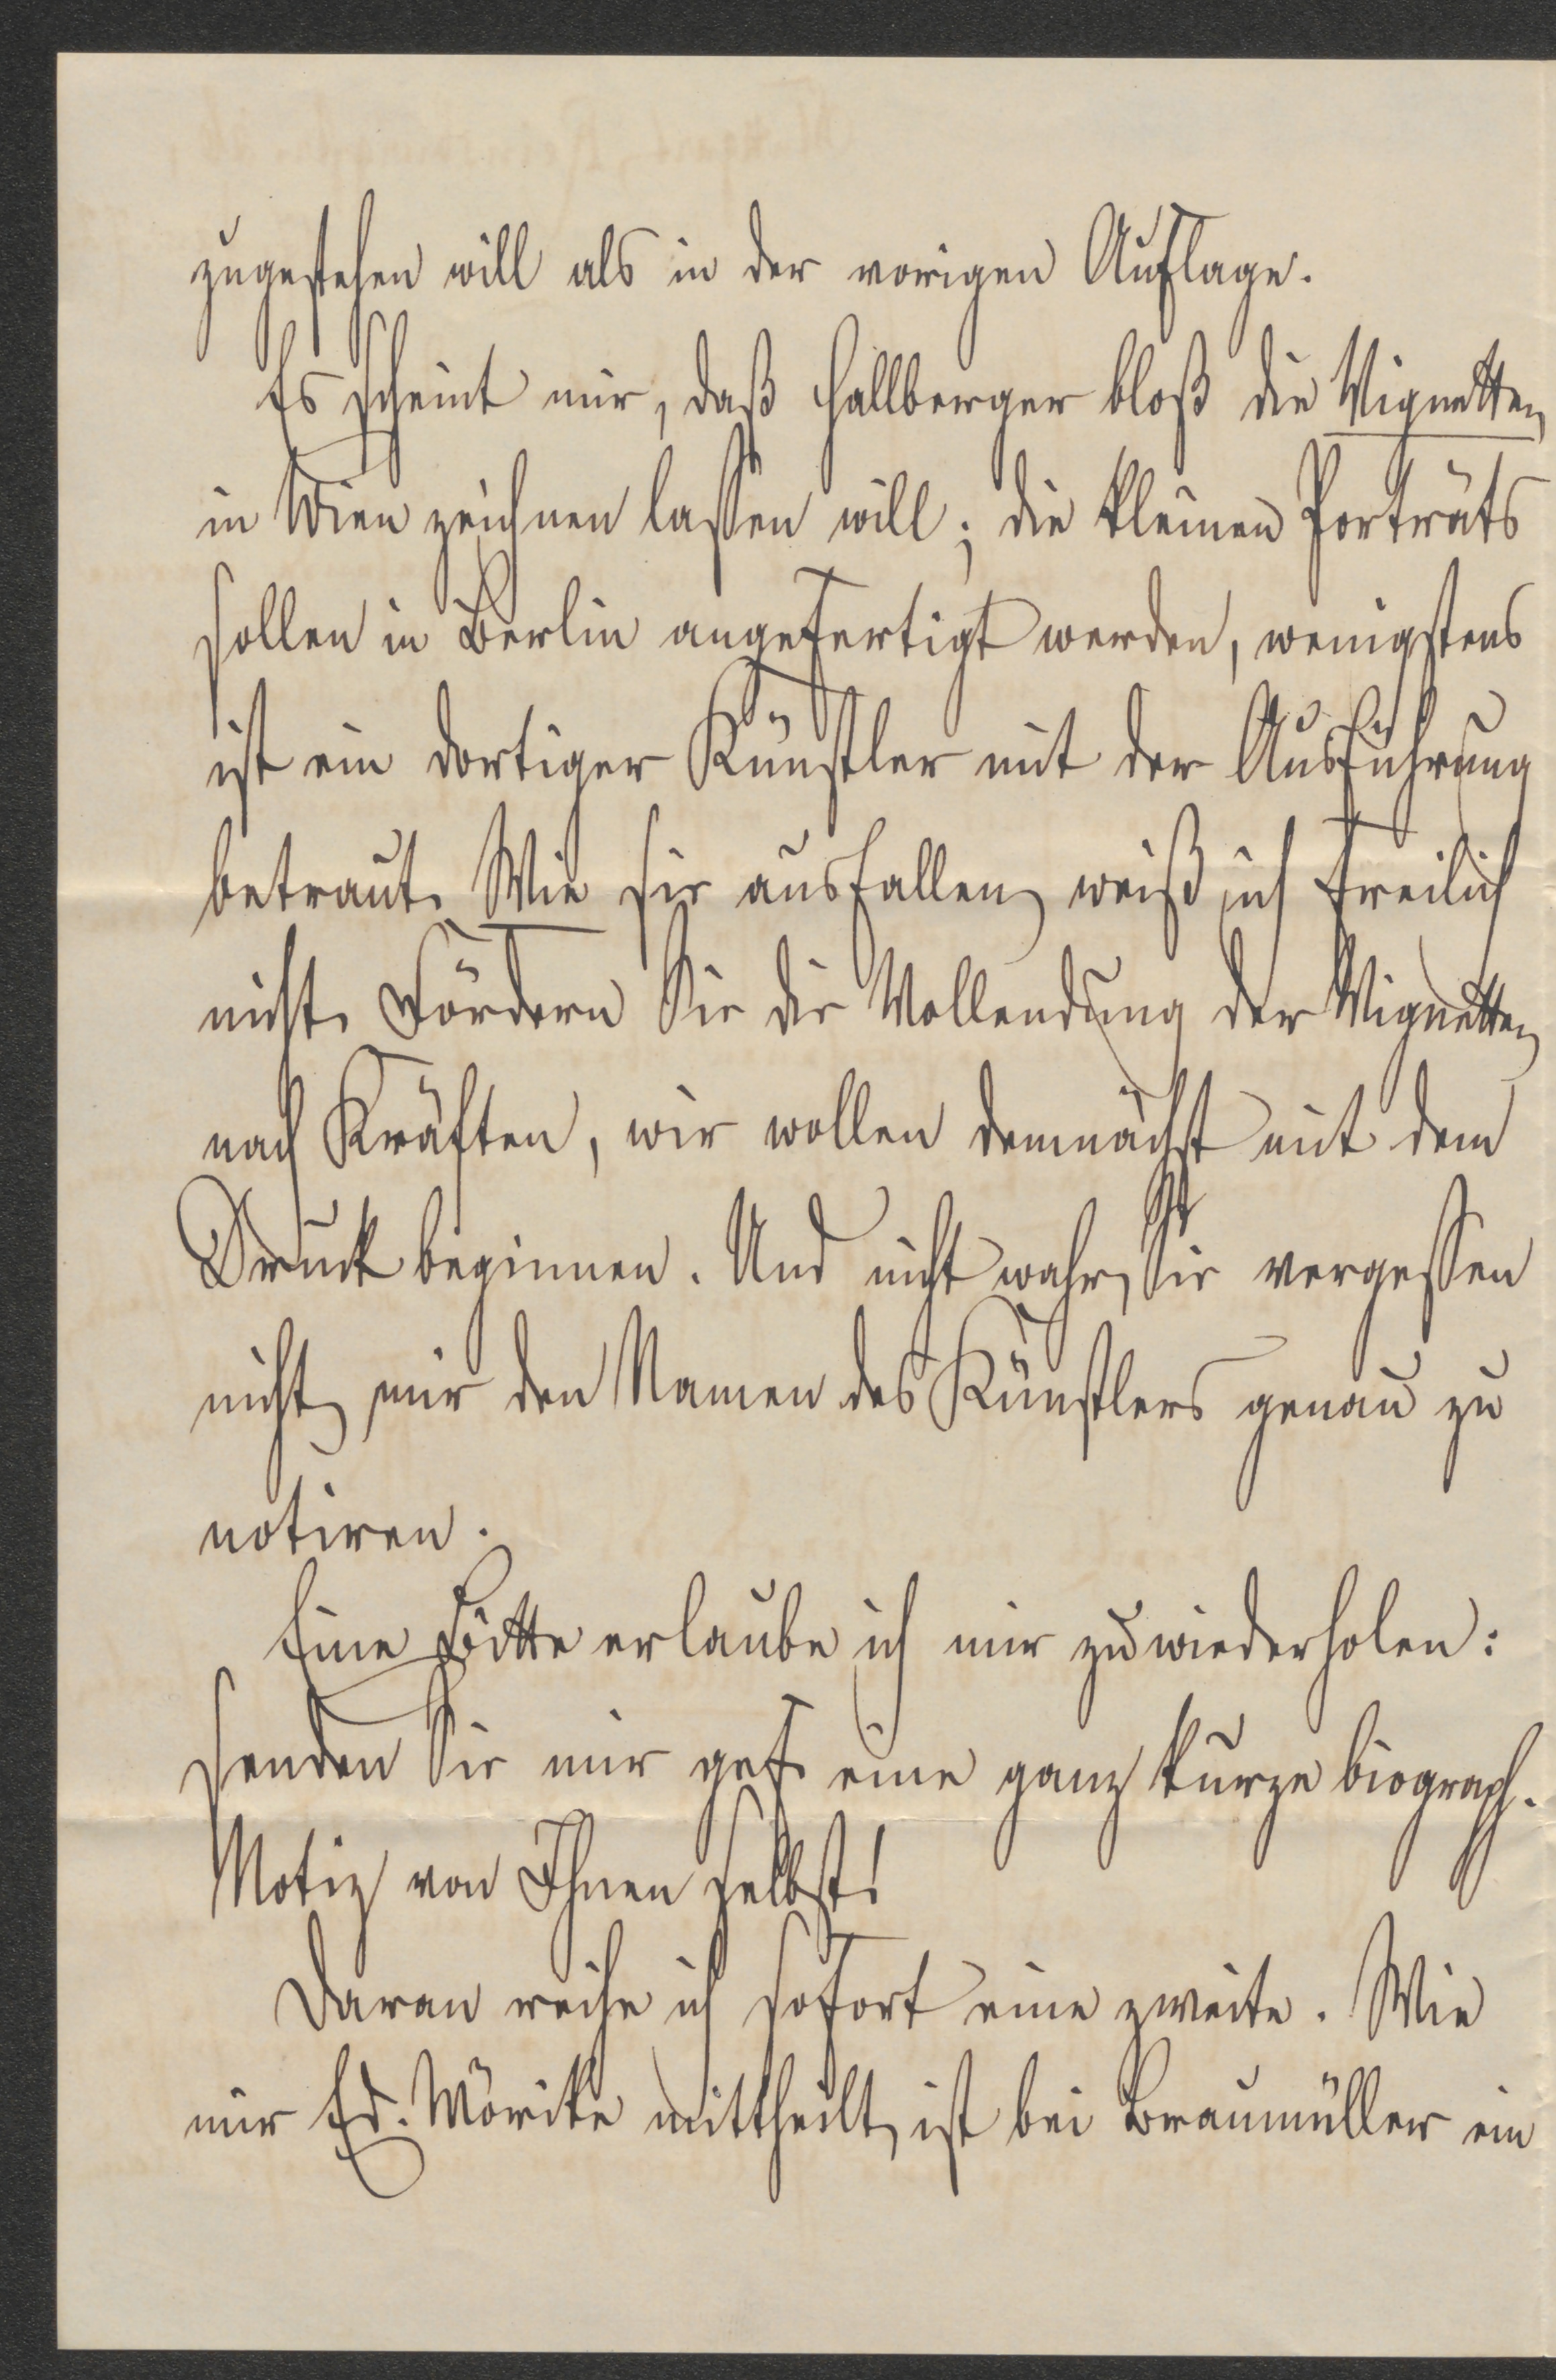 zugestehen will als in der vorigen Auflage.
Es scheint mir, daß Hallberger bloß die Vignetten
in Wien zeichnen lassen will; die kleinen Porträts
sollen in Berlin angefertigt werden, wenigstens
ist ein dortiger Künstler mit der Ausführung
betraut. Wie sie ausfallen, weiß ich freilich
nicht. Fördern Sie die Vollendung der Vignetten
nach Kräften, wir wollen demnächst mit dem
Druck beginnen. Und nicht wahr, Sie vergessen
nicht, mir den Namen des Künstlers genau zu
notiren.
Eine Bitte erlaube ich mir zu wiederholen:
senden Sie mir gef. eine ganz kurze biograph.
Notiz von Ihnen selbst!
Daran reihe ich sofort eine zweite. Wie
mir Ed. Mörike mittheilt, ist bei Braumüller ein